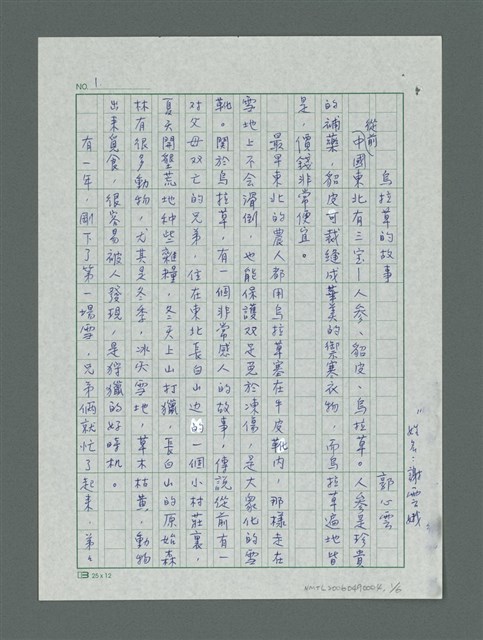 NO. 1
姓名：謝雲娥
烏拉草的故事
郭心雲
從前中國東北有三宗—人參、貂皮、烏拉草。人參是珍貴
的補藥，貂皮可裁縫成華美的禦寒衣物，而烏拉草遍地皆
是，價錢非常便宜。
最早東北的農人都用烏拉草塞在牛皮靴內，那樣走在
雪地上不会滑倒，也能保護双足免於凍傷，是大眾化的雪
靴。關於烏拉草，有一個非常感人的故事，傳說從前有一
对父母双亡的兄弟，住在東北長白山边的一個小村莊裏，
夏天開墾荒地种些雜糧，冬天上山打獵，長白山的原始森
林有很多動物，尤其是冬季，冰天雪地，草木枯黃，動物
出來覓食，很容易被人發現，是狩獵的好時机。
有一年，剛下了第一場雪，兄弟倆就忙了起來，弟々
25x12